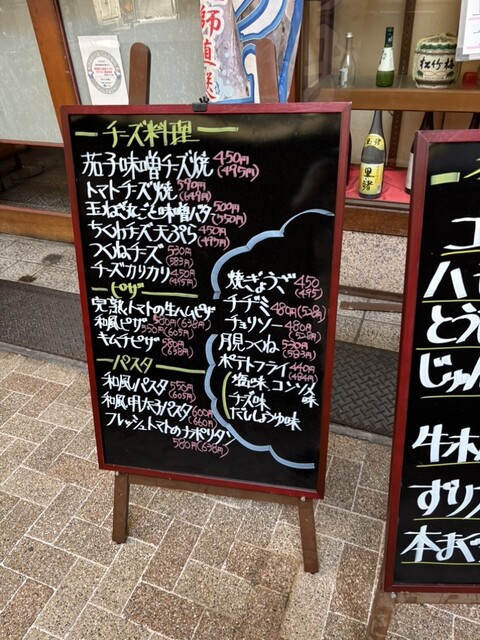 師直送
松竹梅
黒潜
チーズ料理
茄子味噌チーズ焼 450円(495円)
トマトチーズ焼 590円(649円)
玉ねぎ丸ごと味噌バター 500円(550円)
ちくわチーズ天ぷら 450円(495円)
つくねチーズ 530円(583円)
チーズカリカリ 450円(495円)
ピザ
完熟トマトの生ハムピザ 580円(638円)
和風ピザ 550円(605円)
キムチピザ 580円(638円)
パスタ
和風パスタ 550円(605円)
和風明太子パスタ 600円(660円)
フレッシュトマトのナポリタン 580円(638円)
焼ぎょうざ 450(495)
チヂミ 480円(528円)
チョリソー 480円(528)
月見つくね 530円(583円)
ポテトフライ 440円(484円)
塩味 コンソメ味
チーズ味
だししょうゆ味
エ
ハ
とう
じゅん
牛
すり
本まぐ